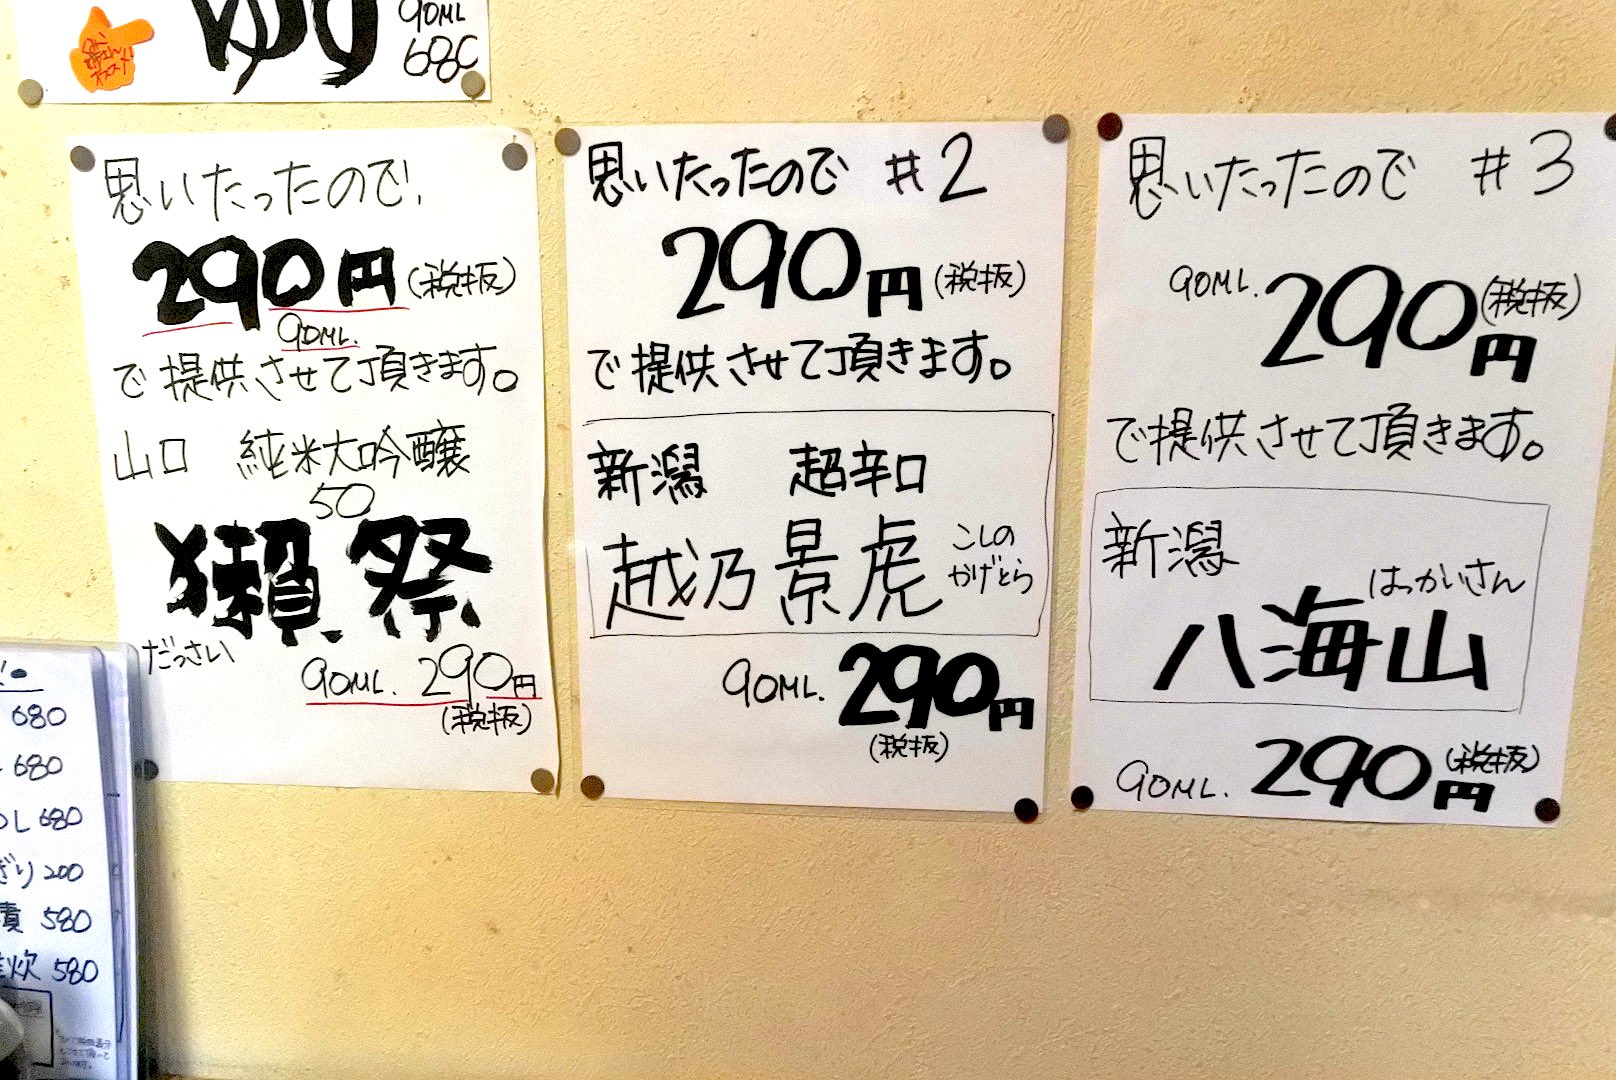 90ML
680
思いたったので!
290円(税抜)
90ML.
で提供させて頂きます。
山口 純米大吟醸
50
獺祭
だっさい
90ML. 290円
(税抜)
思いたったので #2
290円(税抜)
で提供させて頂きます。
新潟 超辛口
越乃景虎
こしの
かげとら
90ML. 290円
(税抜)
思いたったので #3
90ML. 290円(税抜)
で提供させて頂きます。
新潟
はっかいさん
八海山
90ML. 290円(税抜)
680
680
680
ぎり 200
580
炊 580